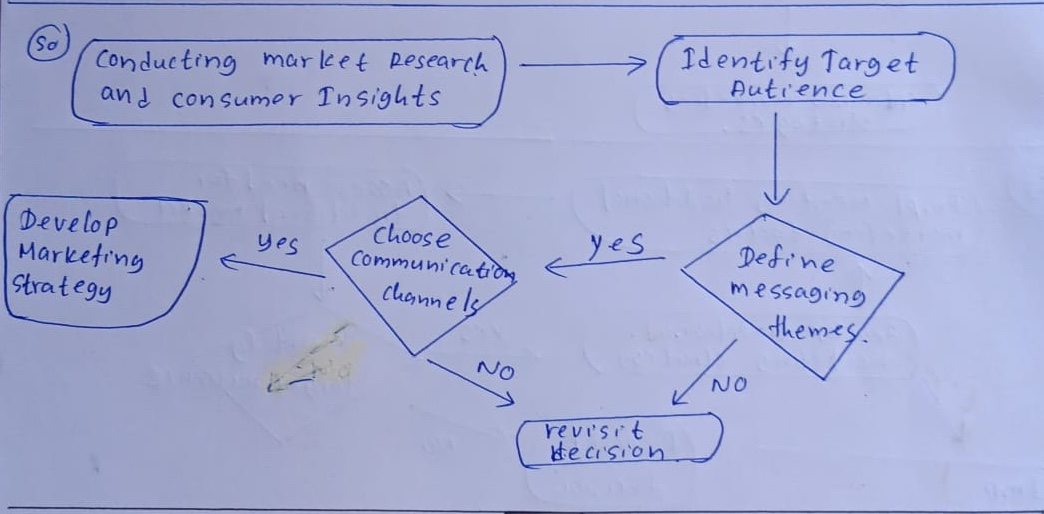 So
Conducting market Research
and consumer Insights
Identify Target
Autience
Define
messaging
themes.
yes
NO
Choose
communication
channels
yes
NO
Develop
Marketing
Strategy
revisit
decision